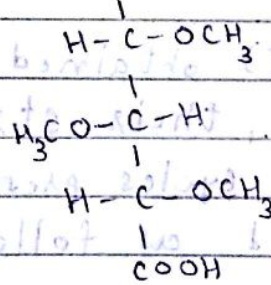 H-C-OCH3
H3CO-C-H
H-C-OCH3
COOH